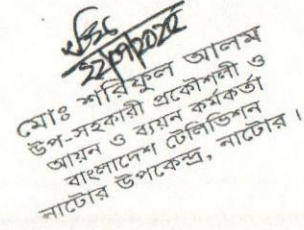 মোঃ শরিফুল আলম
উপ-সহকারী প্রকৌশলী ও
আয়ন ও ব্যয়ন কর্মকর্তা
বাংলাদেশ টেলিভিশন
নাটোর উপকেন্দ্র, নাটোর।